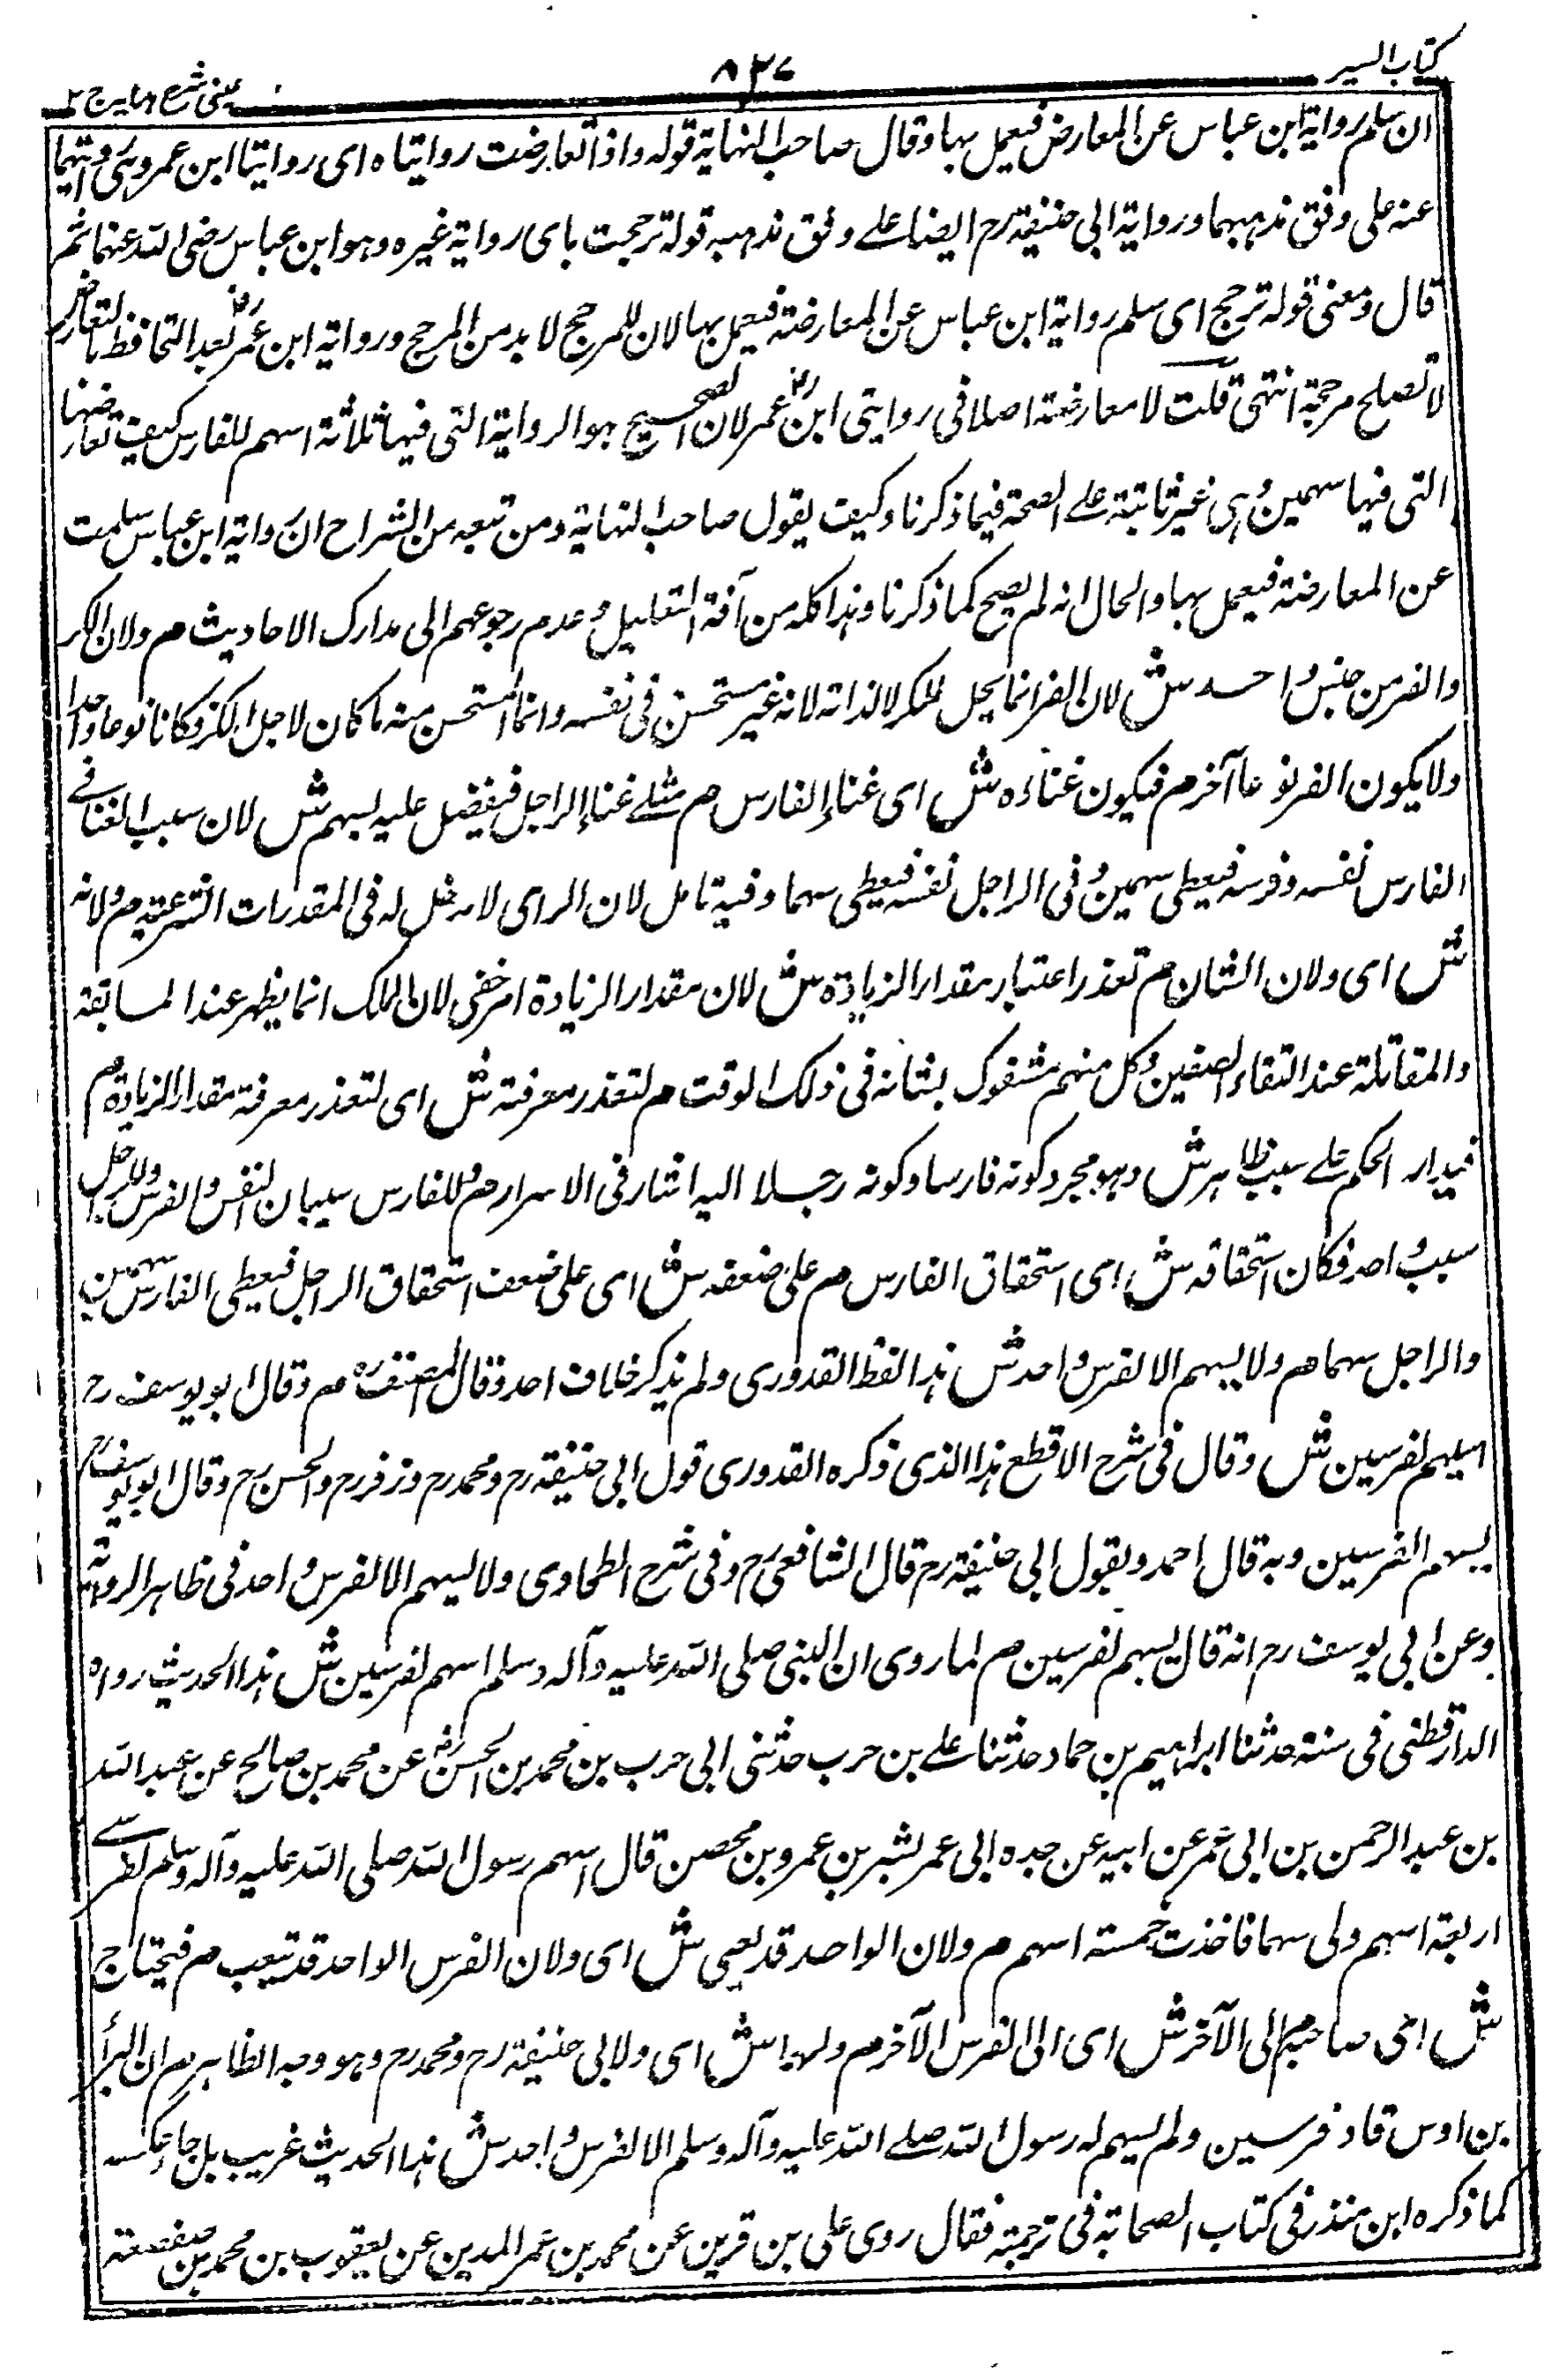 كتاب السير
٨٣٧
عينى شرح هدايه ج ٢
ان سلم رواية ابن عباس عن المعارض فيعمل بها وقال صاحب النهاية قوله واذا تعارضت روايتاه اى روايتا ابن عمر وهى روايتهما
عنه على وفق مذهبهما ورواية ابى حنيفة رح ايضا على وفق مذهبه قوله ترجحت باى رواية غيره وهو ابن عباس رضى الله عنهما ثم
قال ومعنى قوله ترجح اى سلم رواية ابن عباس عن المعارضة فيعمل بها لان للمرجح لا بد من المرجح ورواية ابن عمر رض بعد التحافظ بالتعارض
لا تصلح مرجحة انتهى قلت لا معارضة اصلا فى روايتى ابن عمر رض لان الصحيح هو الرواية التى فيها ثلاثة اسهم للفارس كيف تعارضها
التى فيها سهمين وهى غير ثابتة على الصحة فيما ذكرنا وكيف يقول صاحب النهاية ومن تبعه من الشراح ان رواية ابن عباس سلمت
عن المعارضة فيعمل بها والحال انه لم يصح كما ذكرنا وهذا كله من آفة التعليل وعدم رجوعهم الى مدارك الاحاديث م ولان الكر
والفر من جنس واحد ش لان الفر انما يحل للكر لا لذاته لانه غير مستحسن فى نفسه وانما المستحسن منه ما كان لاجل الكر فكانا نوعا واحدا
ولا يكون الفر نوعا آخر م فيكون غناءه ش اى غناء الفارس م مثلى غناء الراجل فيفضل عليه بسهم ش لان سبب الغنا فى
الفارس نفسه وفرسه فيعطى سهمين وفى الراجل نفسه فيعطى سهما وفيه تامل لان الراى لا مدخل له فى المقدرات الشرعية م ولانه
ش اى ولان الشان م تعذر اعتبار مقدار الزيادة ش لان مقدار الزيادة امر خفى لان الملك انما يظهر عند المسابقة
والمقاتلة عند التقاء الصفين وكل منهم مشغوف بشانه فى ذلك الوقت م لتعذر معرفته ش اى لتعذر معرفة مقدار الزيادة م
فيدار الحكم على سبب ظاهر ش وهو مجرد كونه فارسا وكونه رجلا اليه اشار فى الاسرار م وللفارس سببان النفس والفرس وللراجل
سبب واحد فكان استحقاقه ش اى استحقاق الفارس م على ضعفه ش اى على ضعف استحقاق الراجل فيعطى الفارس سهمين
والراجل سهما م ولا يسهم الا لفرس واحد ش هذا لفظ القدورى ولم يذكر خلاف احد وقال المصنف رح م وقال ابو يوسف رح
يسهم لفرسين ش وقال فى شرح الاقطع هذا الذى ذكره القدورى قول ابى حنيفة رح ومحمد رح وزفر رح والحسن رح وقال ابو يوسف رح
يسهم الفرسين وبه قال احمد وبقول ابى حنيفة رح قال الشافعى رح وفى شرح الطحاوى ولا يسهم الا لفرس واحد فى ظاهر الرواية
وعن ابى يوسف رح انه قال يسهم لفرسين م لما روى ان النبى صلى الله عليه وآله وسلم اسهم لفرسين ش هذا الحديث رواه
الدارقطنى فى سننه حدثنا ابراهيم بن حماد حدثنا على بن حرب حدثنى ابى حرب بن محمد بن الحسن رض عن محمد بن صالح عن عبد الله
بن عبد الرحمن بن ابى عمر عن ابيه عن جده ابى عمر بشير بن عمرو بن محصن قال اسهم رسول الله صلى الله عليه وآله وسلم لفرسى
اربعة اسهم ولى سهما فاخذت خمسة اسهم م ولان الواحد قد يعيى ش اى ولان الفرس الواحد قد يتعب م فيحتاج
ش اى صاحبه م الى الآخر ش اى الى الفرس الآخر م ولهما ش اى ولابى حنيفة رح ومحمد رح وهو وجه الظاهر م ان البرأ
بن اوس قاد فرسين ولم يسهم له رسول الله صلى الله عليه وآله وسلم الا لفرس واحد ش هذا الحديث غريب بل جاء عكسه
كما ذكره ابن منذر فى كتاب الصحابة فى ترجمته فقال روى على بن قرين عن محمد بن عمر المدين عن يعقوب بن محمد بن صعصعة